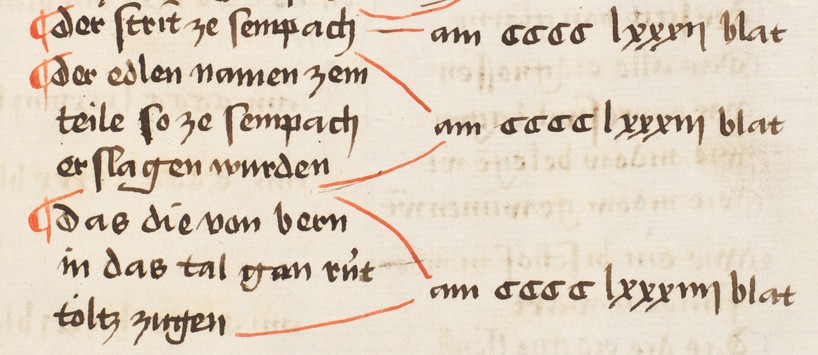 ¶ der strit ze sempach
am cccc lxxxij blat
¶ der edlen namen zem
teile so ze sempach
erslagen wurden
am cccc lxxxiij blat
¶ das die von bern
in das tal gan rüt
toltz zugen
am cccc lxxxiiij blat